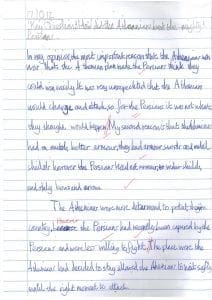 Key Question: How did the Athenians beat the mighty
Persians?
In my opinion, the most important reason that the Athenians won
was that the Athenians made the Persians think they
could win easily. It was very unexpected that the Athenians
would charge and attack, so for the Persians it was not what
they thought would happen. My second reason is that the Athenians
had a much better armour, they had armour swords and
shields however the Persians had no armour, wicker shields,
and only bows and arrows.
The Athenians were more determined to protect their
country, however the Persians had recently been captured by the
Persians and were less willing to fight. The place were the
Athenians had decided to stay allowed the Athenians to wait safely
until the right moment to attack.